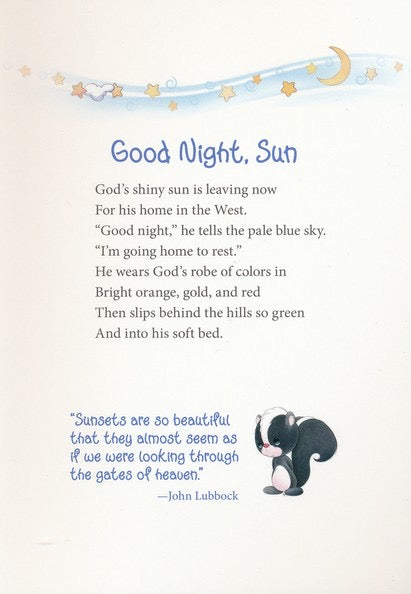 Good Night, Sun
God's shiny sun is leaving now
For his home in the West.
"Good night," he tells the pale blue sky.
"I'm going home to rest."
He wears God's robe of colors in
Bright orange, gold, and red
Then slips behind the hills so green
And into his soft bed.
"Sunsets are so beautiful
that they almost seem as
if we were looking through
the gates of heaven."
—John Lubbock